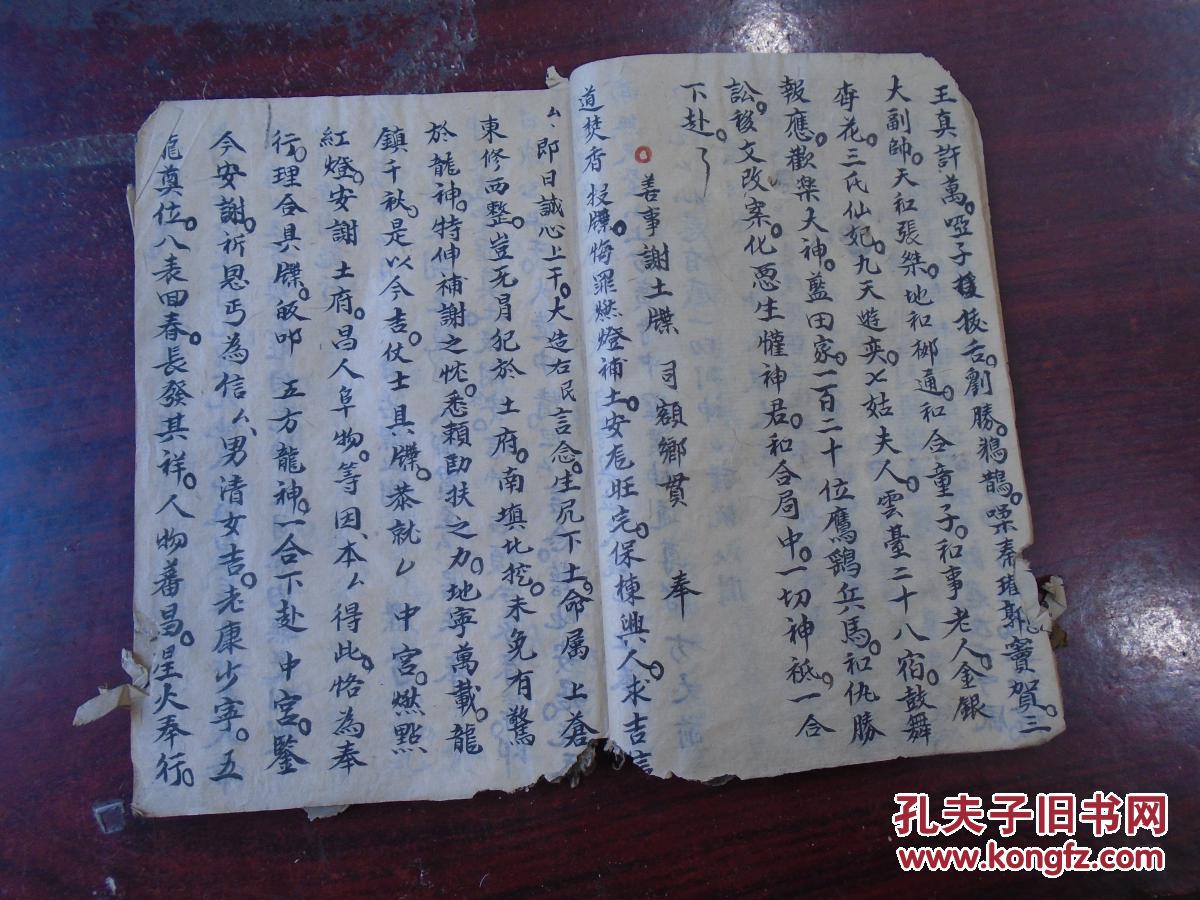 王真許萬。啞子援拔舌。劊勝。鵝鵲。噪素
郭竇賀。三
大副帥。天和張桀。地和柳通。和合童子。和事老人。金銀
花。三氏仙妃。九天遊奕。七姑夫人。雲臺二十八宿。鼓舞
報應。歡樂大神。藍田家。一百二十位鷹鷂兵馬。和仇勝
訟。後文改案。化惡生權神君。和合局中。一切神祗。一合
下赴。了
善事謝土牒 司額鄉貫 奉
道焚香投牒悔罪燃燈補土。安龙旺宅。保棟興人。求吉
厶、即日誠心上干。大造右民言念。生凥下土。命属 上蒼
東修西整。豈无冐犯於土府。南填北挖。未免有驚
於龍神。特伸補謝之忱。悉頼助扶之力。地寧萬載。龍
鎮千秋。是以今吉。仗士具牒。恭就厶 中宮。燃點
紅燈。安謝 土府。昌人阜物。等因本厶得此。恪為奉
行。理合具牒。皈叩 五方龍神。一合下赴 中宮。鑒
今安謝。祈恩丐為信厶、男清女吉。老康少寧。五
龍奠位。八表回春。長發其祥。人物蕃昌。星火奉行。
孔夫子旧书网
www.kongfz.com